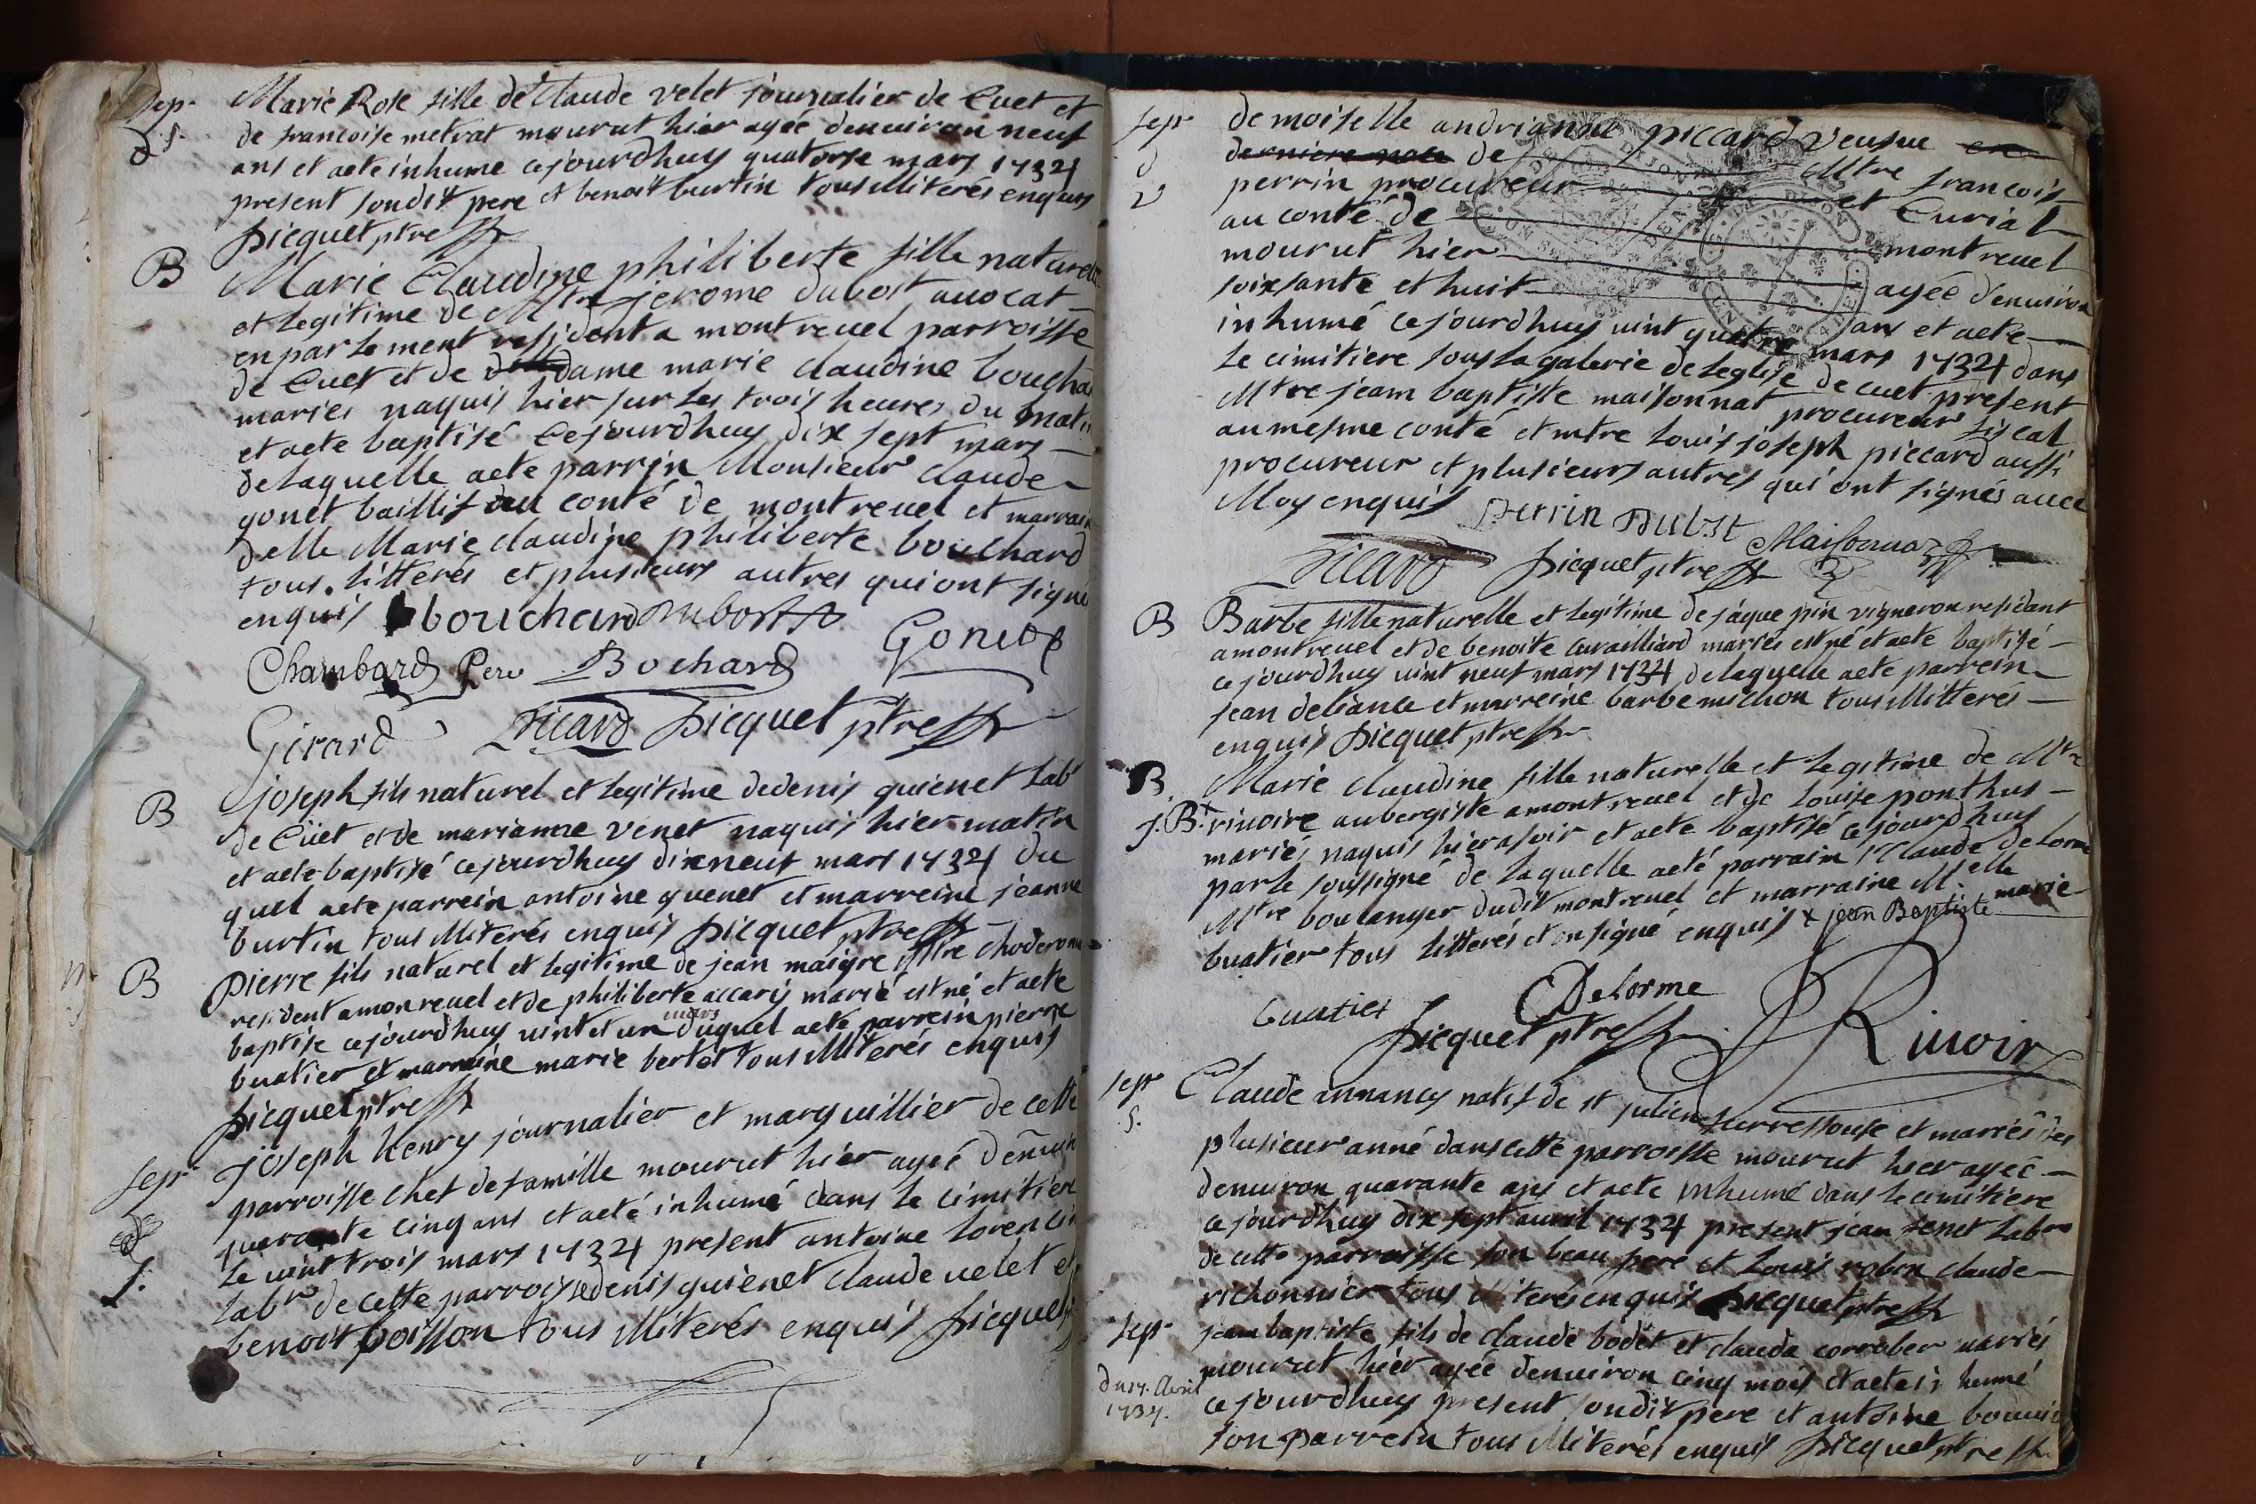 Sepr Marie Rose fille de Claude velet journalier de Cuet et
d. s. de francoise metrat mourut hier agée denuiron neuf
ans et acte inhume cejourdhuy quatorse mars 1734
present sondit pere et benoit burtin tous illiterés enquis
picquet ptre
B Marie Claudine philiberte fille naturelle
et legitime de Mtre jerome dubost auocat
en parlement resident a montreuel parroisse
de Cuet et de dame marie claudine bouchard
mariés naquis hier sur les trois heures du matin
et acte baptisé Cejourdhuy dix sept mars
delaquelle acte parrin Monsieur claude
gonet baillif du conté de montreuel et marraine
delle Marie claudine philiberte bouchard
tous litterés et plusieurs autres qui ont signé
enquis bouchard Dubost
Chambard Pero Bochard Gonet
Girard Picard picquet ptre
B joseph fils naturel et legitime de denis quienet labr
de Cüet et de marianne venet naquis hier matin
et acte baptisé cejourdhuy dix neuf mars 1734 du
quel acte parrein antoine quenet et marreine jeanne
burtin tous illiterés enquis picquet ptre
B pierre fils naturel et legitime de jean maigre mtre
resident a monreuel et de philiberte accary marié est né et acte
baptise cejourdhuy uint et un mars duquel acte parrein pierre
buatier et marraine marie bertet tous illiterés enquis
picquet ptre
Sepr joseph henry journalier et marguillier de cette
parroisse chef de famille mourut hier agée denuiron
quarante cinq ans et acté inhumé dans le cimitiere
s. le uint trois mars 1734 present antoine lorencin
labr de cette parroisse denis quienet claude uelet et
benoit poisson tous illiterés enquis picquet
sepr demoiselle andrianne piccard veusue
d derniere de Mtre francois
v perrin procureur et Curial
au conté de montreuel
mourut hier agée denuiron
soixsante et huit ans et acte
inhumé cejourdhuy uint quatre mars 1734 dans
le cimitiere sous la galerie de leglise de cuet present
Mtre jeam baptiste maisonnat procureur fiscal
au mesme conté et mtre Louis joseph piccard aussi
procureur et plusieurs autres qui ont signés auec
Moy enquis perrin Dubst Maisonnat
Picard picquet ptre
B Barbe fille naturelle et legitime de jaque pin vigneron residant
a montreuel et de benoite mariés est né et acte baptisé
cejourdhuy uint neuf mars 1734 delaquelle acte parrein
jean deliance et marreine barbe michon tous illitterés
enquis picquet ptre
B Marie Claudine fille naturelle et legitime de Mtre
J. B. riuoire aubergiste a montreuel et de louise ponthus
mariés naquis hier asoir et acte baptisé cejourdhuy
par le soussigné de laquelle acté parrain claude Delorme
Mtre boulanger dudit montreuel et marraine Melle marie
buatier tous litterés et on signé enquis x jean Baptiste
buatier C Delorme
picquet ptre Riuoire
sepr Claude annancy natif de st julien sur ressouse et mariés des
s. plusieur anné dans cette parroisse mourut hier agée
denuiron quarante ans et acte inhumé dans le cimitiere
cejourdhuy dix sept auril 1734 present jean fenet labr
de cette parroisse son beau pere et Louis robin claude
richonnier tous illiterés enquis picquet ptre
sepr jean baptiste fils de claude bodet et clauda mariés
mourut hier agée denuiron cinq mois et acte in humé
du 17. Avril 1734. cejourdhuy present sondit pere et antoine bouuie
son parrein tous illiterés enquis picquet ptre